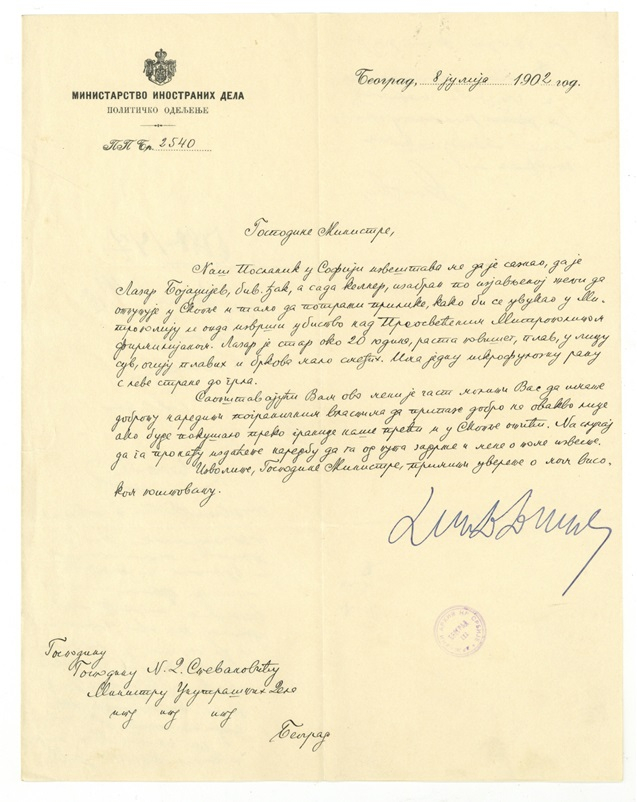 МИНИСТАРСТВО ИНОСТРАНИХ ДЕЛА
ПОЛИТИЧКО ОДЕЉЕЊЕ
ПП Бр. 2540
Београд, 8 јулија 1902 год.
Господине Министре,
Наш Посланик у Софији извештава ме да је сазнао, да је
Лазар Бојаџијев, бив. ђак, а сада келнер, изабран по изјављеној жељи да
отпутује у Скопље и тамо да потражи прилике, како би се увукао у Ми-
трополију и онда извршио убиство над Преосвећеним Митрополитом
Фирмилијаном. Лазар је стар око 20 година, раста повишег, плав, у лицу
сув, очију плавих и бркова мало смеђих. Има једну шкрофулозну рану
с леве стране до грла.
Саопштавајући Вам ово мени је част молити Вас да имате
доброту наредити пограничним властима да припазе добро на овакво лице
ако буде покушало преко границе наше прећи и у Скопље отићи. На случај
да га пронађу издаћете наредбу да га од пута задрже и мене о томе известе.
Изволите, Господине Министре, примити уверење о мом висо-
ком поштовању.
Господину
Господину Н. Д. Стевановићу
Министру Унутрашњих Дела
итд итд итд
Београд